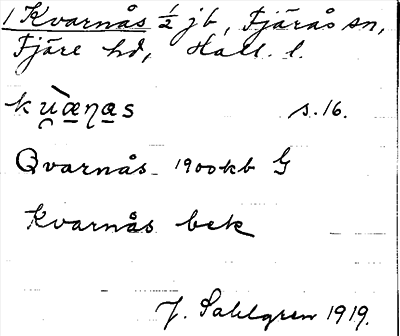 1 Kvarnås ½ jb, Fjärås sn,
Fjäre hd, Hall. l.
ku̯æ̀ṇas s. 16.
Qvarnås - 1900 kb G
Kvarnås bek
J. Sahlgren 1919.